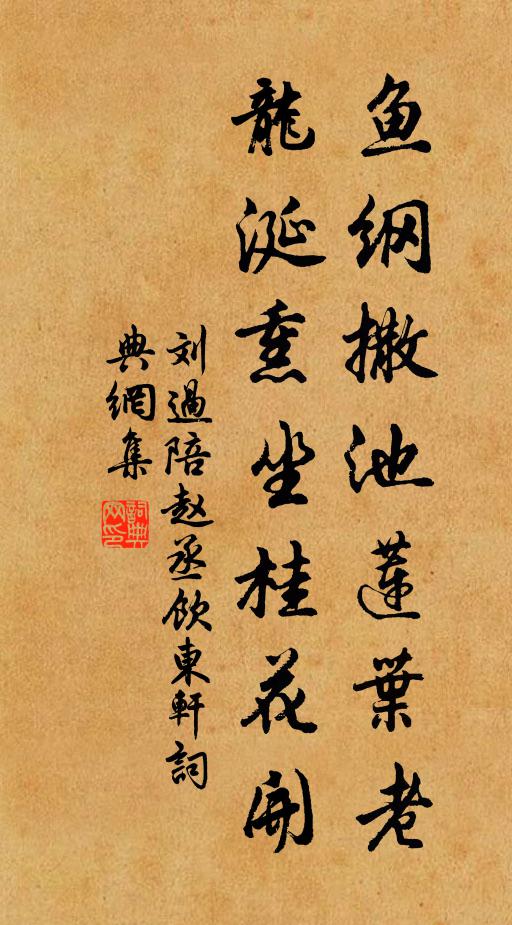 鱼纲撒池蓮葉老
龍涎熏坐桂花開
刘過陪赵丞飲東軒詞
典網集
詞典网印